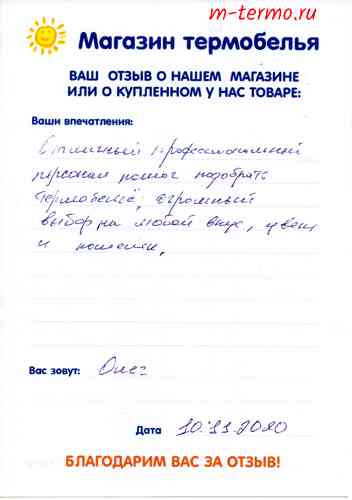 m-termo.ru
Магазин термобелья
ВАШ ОТЗЫВ О НАШЕМ МАГАЗИНЕ
ИЛИ О КУПЛЕННОМ У НАС ТОВАРЕ:
Ваши впечатления:
Отличный профессиональный
персонал помог подобрать
термобельё, огромный
выбор на любой вкус, цвет
и кошелек.
Вас зовут: Олег
Дата 10.11.2010
БЛАГОДАРИМ ВАС ЗА ОТЗЫВ!